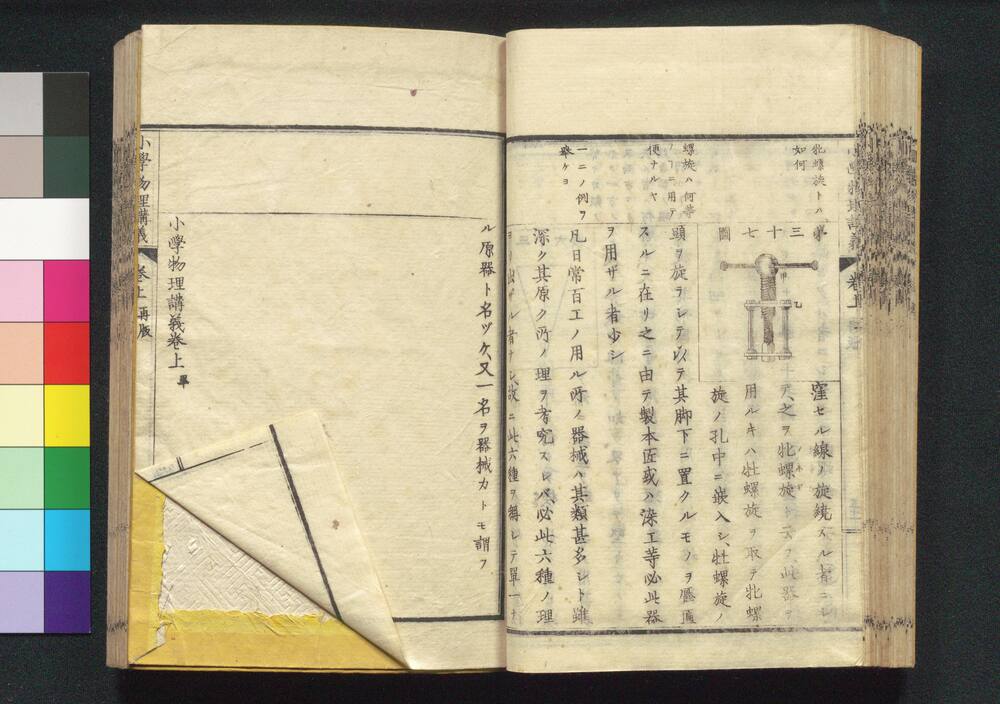 牝螺旋トハ
如何
螺旋ハ何等
ノヿニ用テ
便ナルヤ
一二ノ例ヲ
擧ケヨ
第三十七圖
乙
窪セル線ノ旋繞スル者ニシ
テ之ヲ牝螺旋ト云フ此器ヲ
用ルキハ牡螺旋ヲ取テ牝螺
旋ノ孔中ニ嵌入シ、牡螺旋ノ
頭ヲ旋ラシテ其脚下ニ置クルモノヲ壓
スルニ在リ之ニ由テ製本匠或ハ染工等必此器
ヲ用ザル者少シ
凡日常百工ノ用ル所ノ器械ハ其類甚多シト雖
深ク其原ク所ノ理ヲ考究スレバ、必此六種ノ理
ヨリ出ザル者ナシ、故ニ此六種ヲ稱シテ單一ナ
ル原器ト名ヅケ、又一名ヲ器械力トモ謂フ
小學物理講義卷上 畢
小學物理講義
卷上
再版